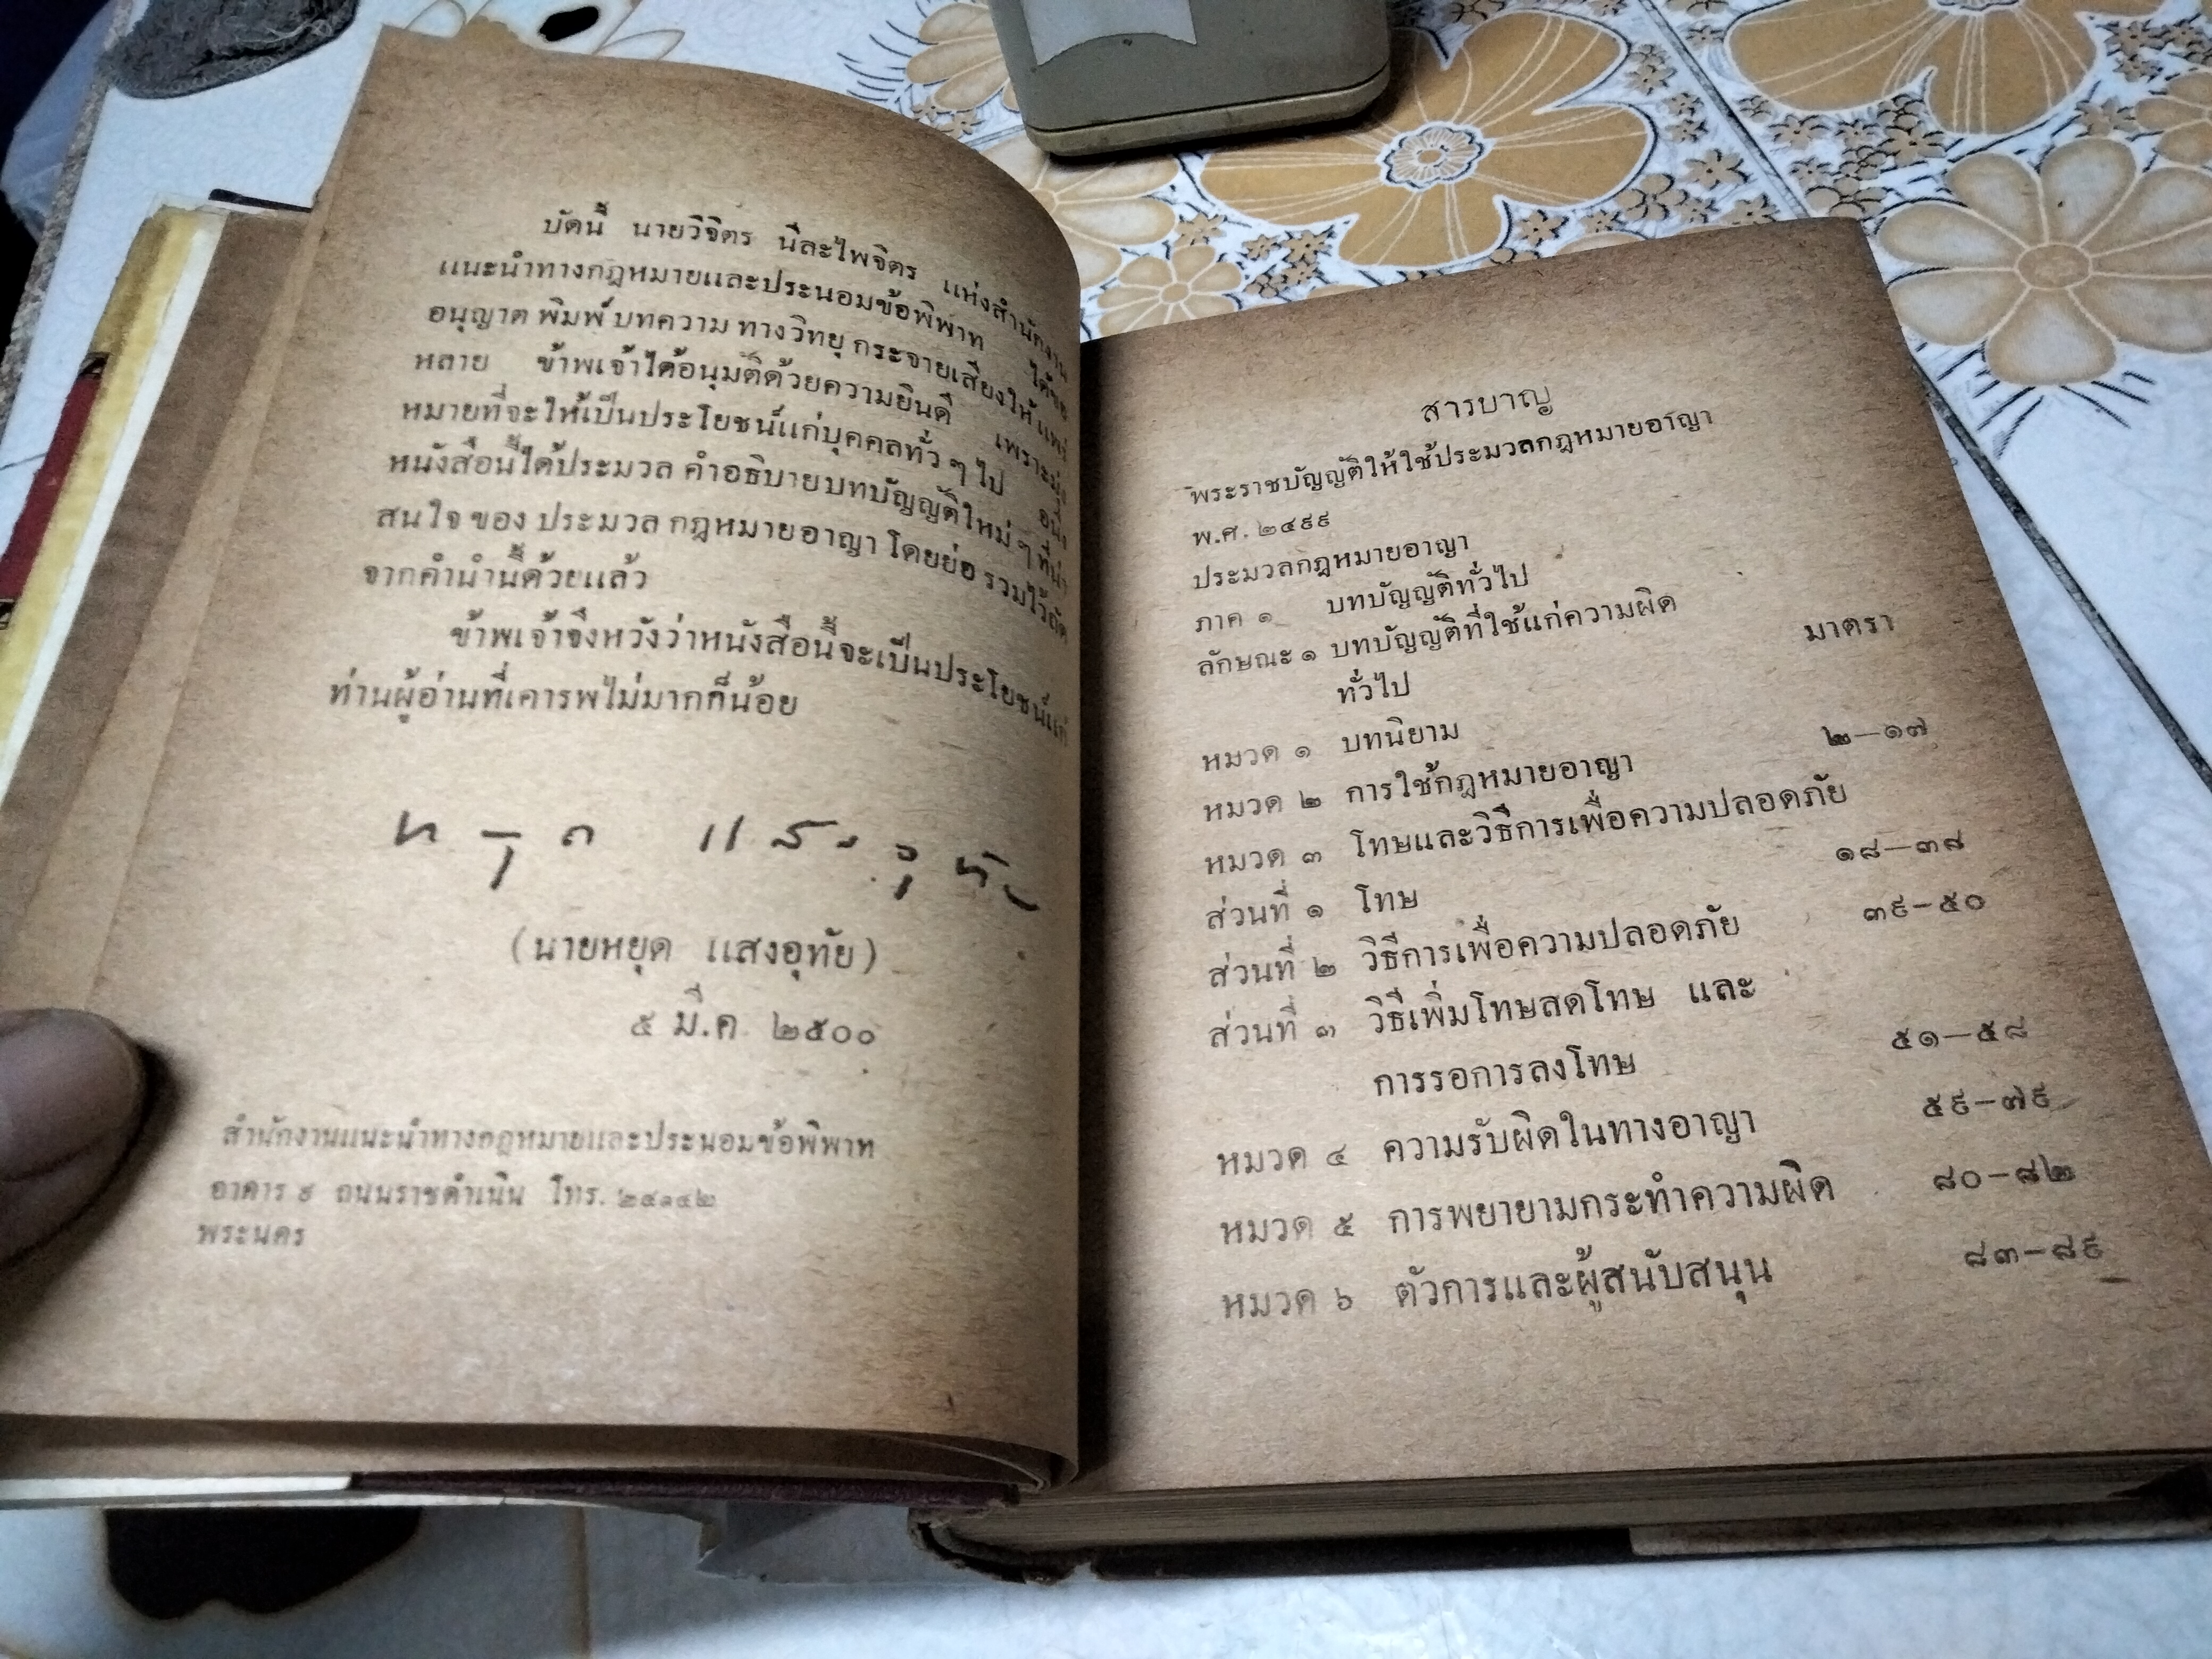 บัดนี้ นายวิจิตร นีละไพจิตร แห่งสำนักงาน
แนะนำทางกฎหมายและประนอมข้อพิพาท ได้ขอ
อนุญาต พิมพ์ บทความ ทางวิทยุ กระจายเสียงให้ แพร่
หลาย ข้าพเจ้าได้อนุมัติด้วยความยินดี เพราะมุ่ง
หมายที่จะให้เป็นประโยชน์แก่บุคคลทั่ว ๆ ไป อนึ่ง
หนังสือนี้ได้ประมวล คำอธิบายบทบัญญัติใหม่ ๆ ที่น่า
สนใจ ของ ประมวล กฎหมายอาญา โดยย่อ รวมไว้ถัด
จากคำนำนี้ด้วยแล้ว
ข้าพเจ้าจึงหวังว่าหนังสือนี้จะเป็นประโยชน์แก่
ท่านผู้อ่านที่เคารพไม่มากก็น้อย
(นายหยุด แสงอุทัย)
๕ มี.ค ๒๕๐๐
สำนักงานแนะนำทางกฎหมายและประนอมข้อพิพาท
อาคาร ๙ ถนนราชดำเนิน โทร.
พระนคร
สารบาญ
พระราชบัญญัติให้ใช้ประมวลกฎหมายอาญา
พ.ศ. ๒๔๙๙
ประมวลกฎหมายอาญา
ภาค ๑ บทบัญญัติทั่วไป
ลักษณะ ๑ บทบัญญัติที่ใช้แก่ความผิด มาตรา
ทั่วไป
หมวด ๑ บทนิยาม
หมวด ๒ การใช้กฎหมายอาญา ๒—๑๗
หมวด ๓ โทษและวิธีการเพื่อความปลอดภัย
ส่วนที่ ๑ โทษ ๑๘—๓๘
ส่วนที่ ๒ วิธีการเพื่อความปลอดภัย ๓๙—๕๐
ส่วนที่ ๓ วิธีเพิ่มโทษลดโทษ และ
การรอการลงโทษ ๕๑—๕๘
หมวด ๔ ความรับผิดในทางอาญา ๕๙—๗๙
หมวด ๕ การพยายามกระทำความผิด ๘๐—๘๒
หมวด ๖ ตัวการและผู้สนับสนุน ๘๓—๘๙